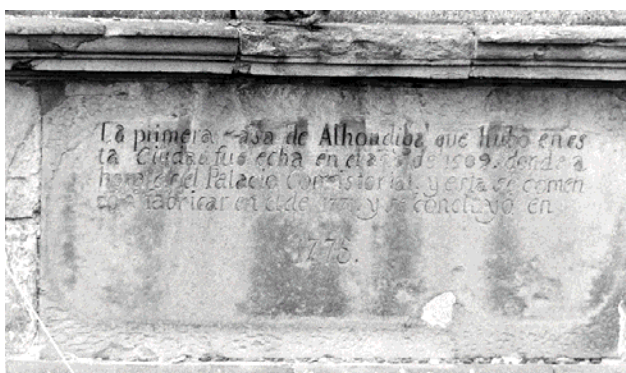 La primera casa de Alhondiba que hubo en es
ta Ciudad fue echa en el año de 1509. donde a
hora es el Palacio Consistorial. y esta se comen
zo a fabricar en el de 1777 y se concluyó en
1778.